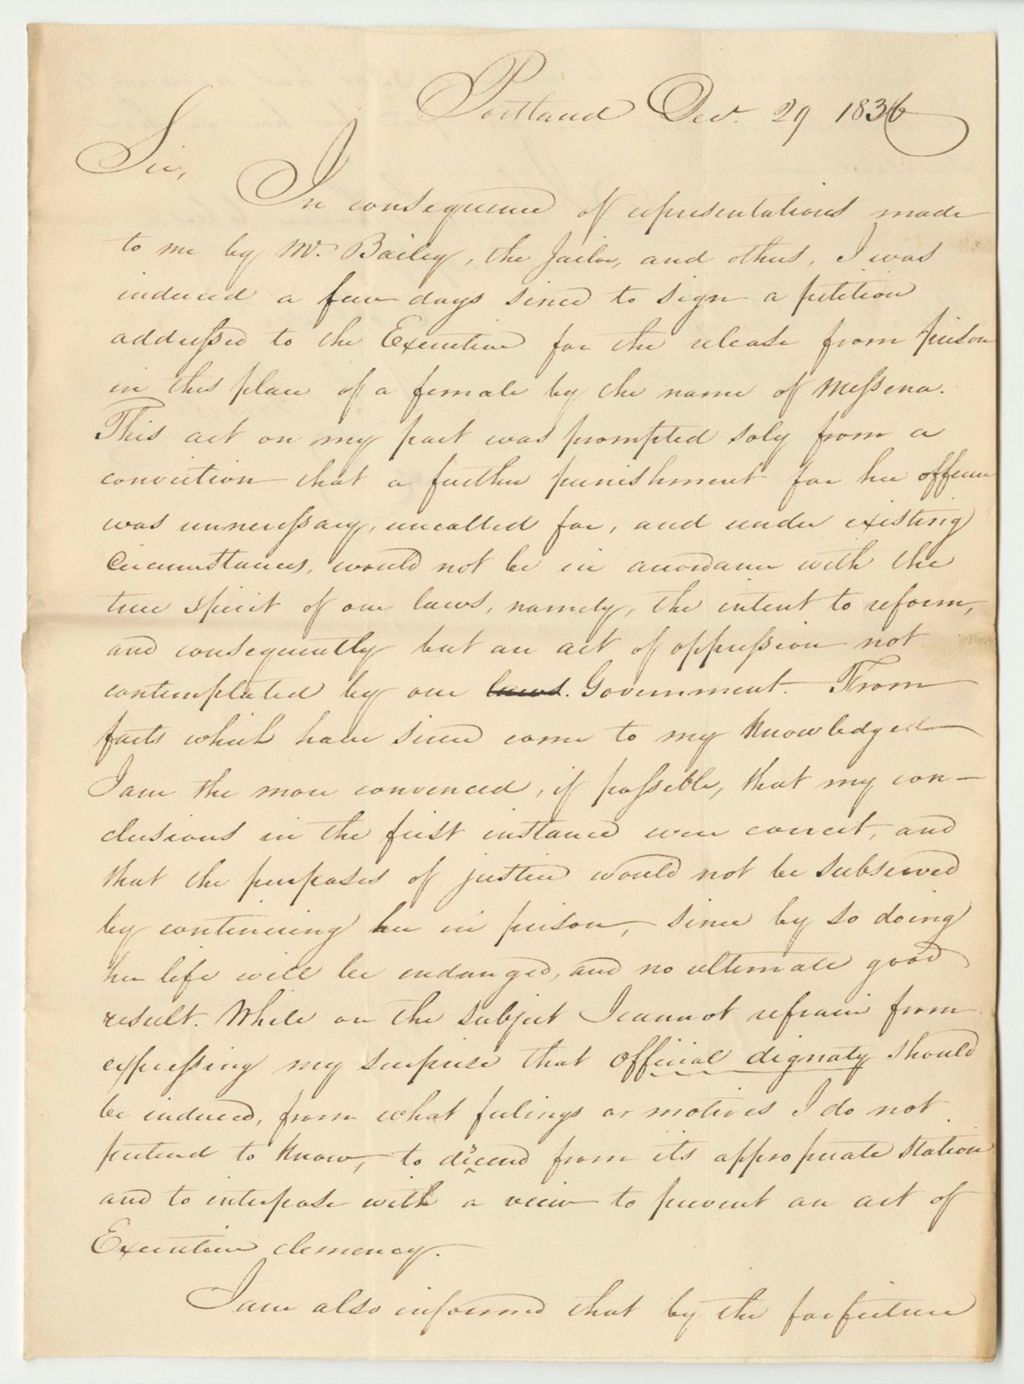 Portland Dec. 29 1836
Sir,
In consequence of representations made
to me by Mr. Bailey, the Jailor, and others, I was
induced a few days since to sign a petition
addressed to the Executive for the release from prison
in this place of a female by the name of Messena.
This act on my part was prompted soly from a
conviction that a further punishment for her offence
was unnecessary, uncalled for, and under existing
Circumstances, would not be in accordance with the
true spirit of our laws, namely, the intent to reform,
and consequently but an act of oppression not
contemplated by our laws. Government. From
facts which have since come to my knowledge
I am the more convinced, if possible, that my con-
clusions in the first instance were correct, and
that the purposes of justice would not be subserved
by continuing her in prison, since by so doing
her life will be endanged, and no ultimate good
result. While on the subject I cannot refrain from
expressing my surprise that official dignaty should
be induced, from what feelings or motives I do not
pretend to know, to dicend from its appropriate station
and to interpose with a view to prevent an act of
Executive clemency.
I am also informed that by the forfeiture